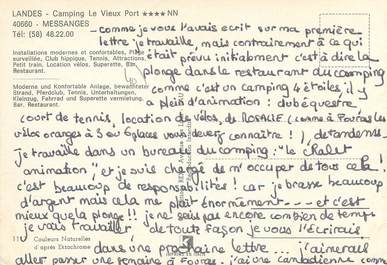 LANDES - Camping Le Vieux Port ★★★★ NN
40660 - MESSANGES
Tél: (58) 48.22.00
Installations modernes et confortables, Plage
surveillée, Club hippique, Tennis, Attractions
Petit train. Location vélos, Superette, Bar,
Restaurant.
Moderne und Komfortable Anlage, bewachter
Strand, Pferdclub, Tennis, Unterhaltungen,
Kleinzug, Fahrrad und Superette vermietung.
Bar, Restaurant.
- comme je vous l'avais écrit sur ma première
lettre je travaille, mais contrairement à ce qui
était prévu initialement c'est à dire la
plonge dans le restaurant du camping
comme c'est un camping 4 étoiles il y
a plein d'animation : club équestre
court de tennis, location de vélos, de ROSALIE (comme à Fouras les
vélos oranges à 3 ou 6 places vous devez connaître !), de tandems -
Je travaille dans un bureau du camping : "le chalet
animation", et je suis chargé de m'occuper de tous cela.
c'est beaucoup de responsabilités ! car je brasse beaucoup
d'argent mais cela me plaît énormément - et c'est
mieux que la plonge !! je ne sais pas encore combien de temps
je vais travailler de toute façon je vous l'écrirais
dans une prochaine lettre ... j'aimerais
aller passer une semaine à Fouras - j'ai une canadienne comme
Couleurs Naturelles
d'après Ektachrome